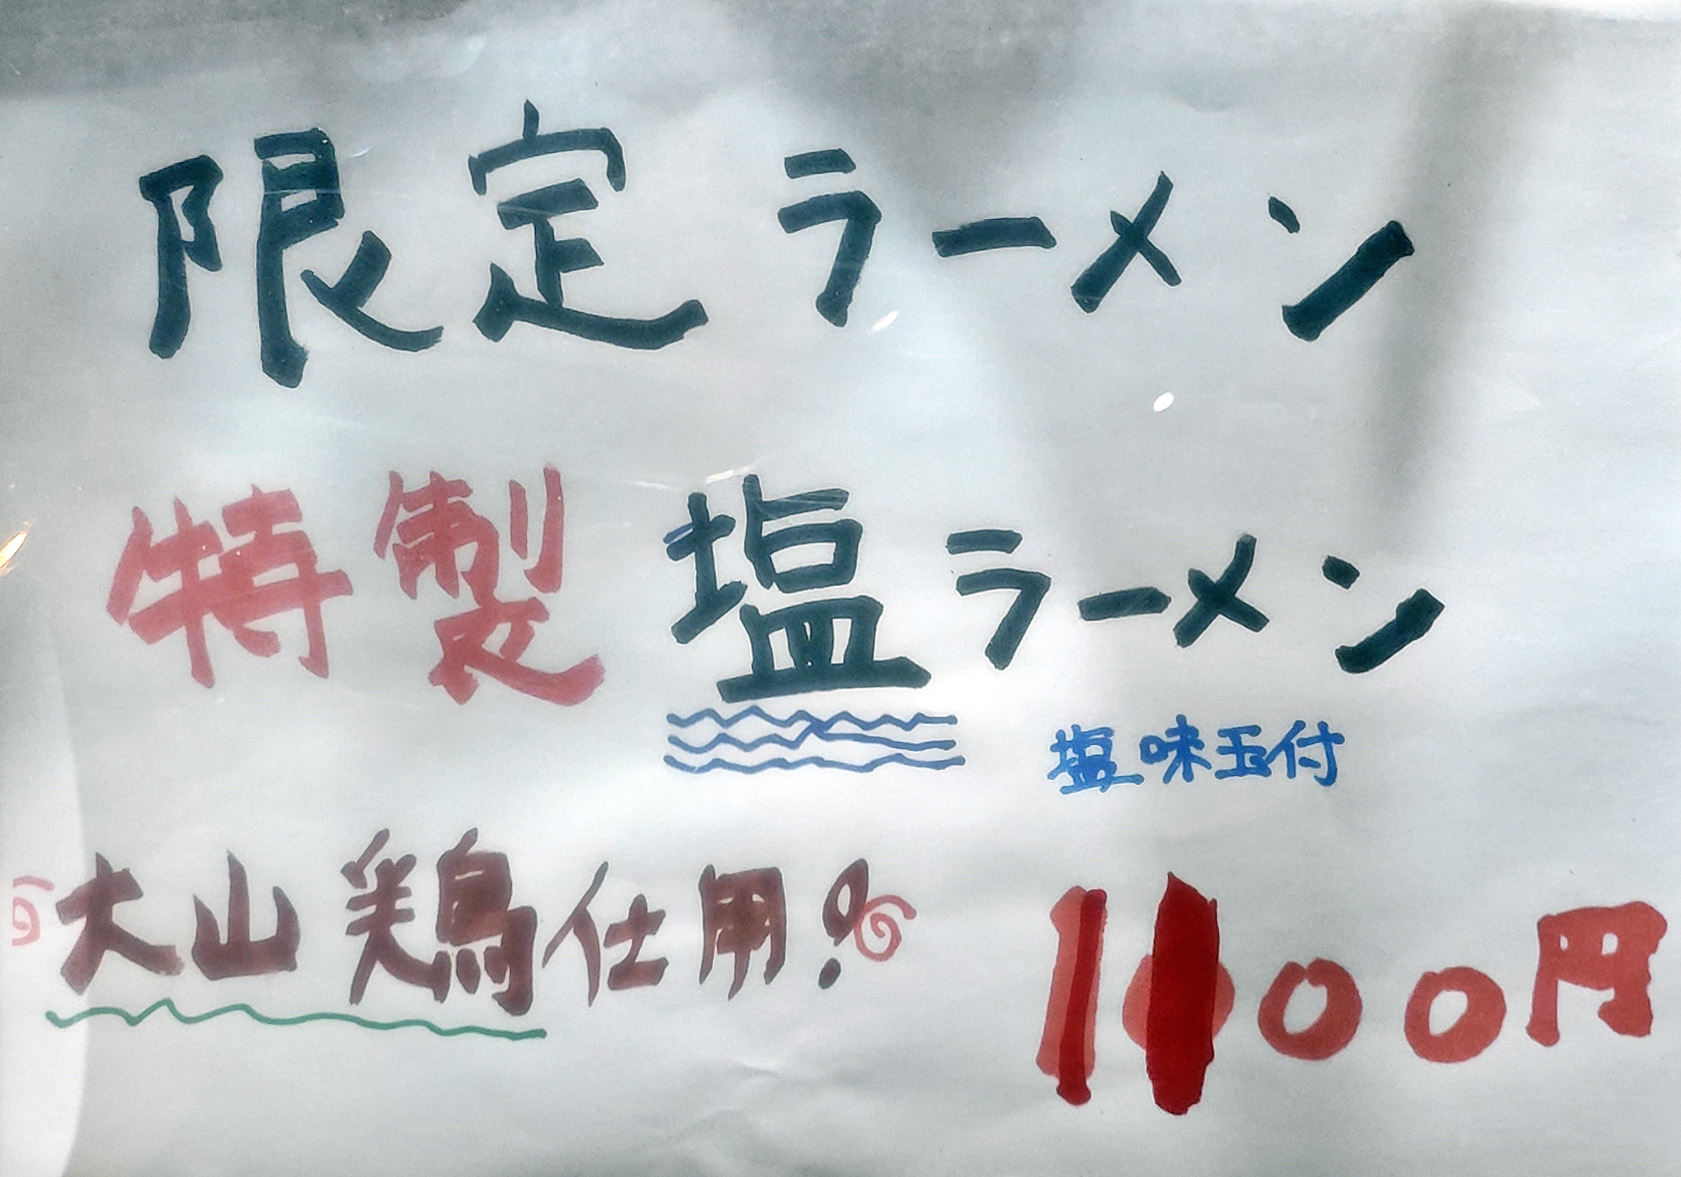 限定ラーメン
特製塩ラーメン
塩味玉付
大山鶏仕用!
1100円